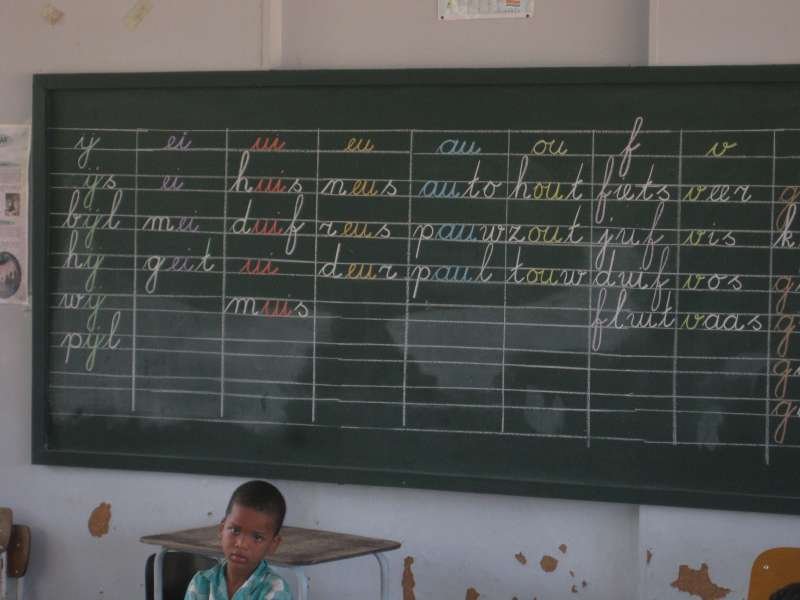 ij ei ui eu au ou f v
ijs ei huis neus auto hout fiets veer
bijl mei duif reus pauw zout juf vis
hij geit ui deur paul touw duif vos
wij muis fluit vaas
pijl